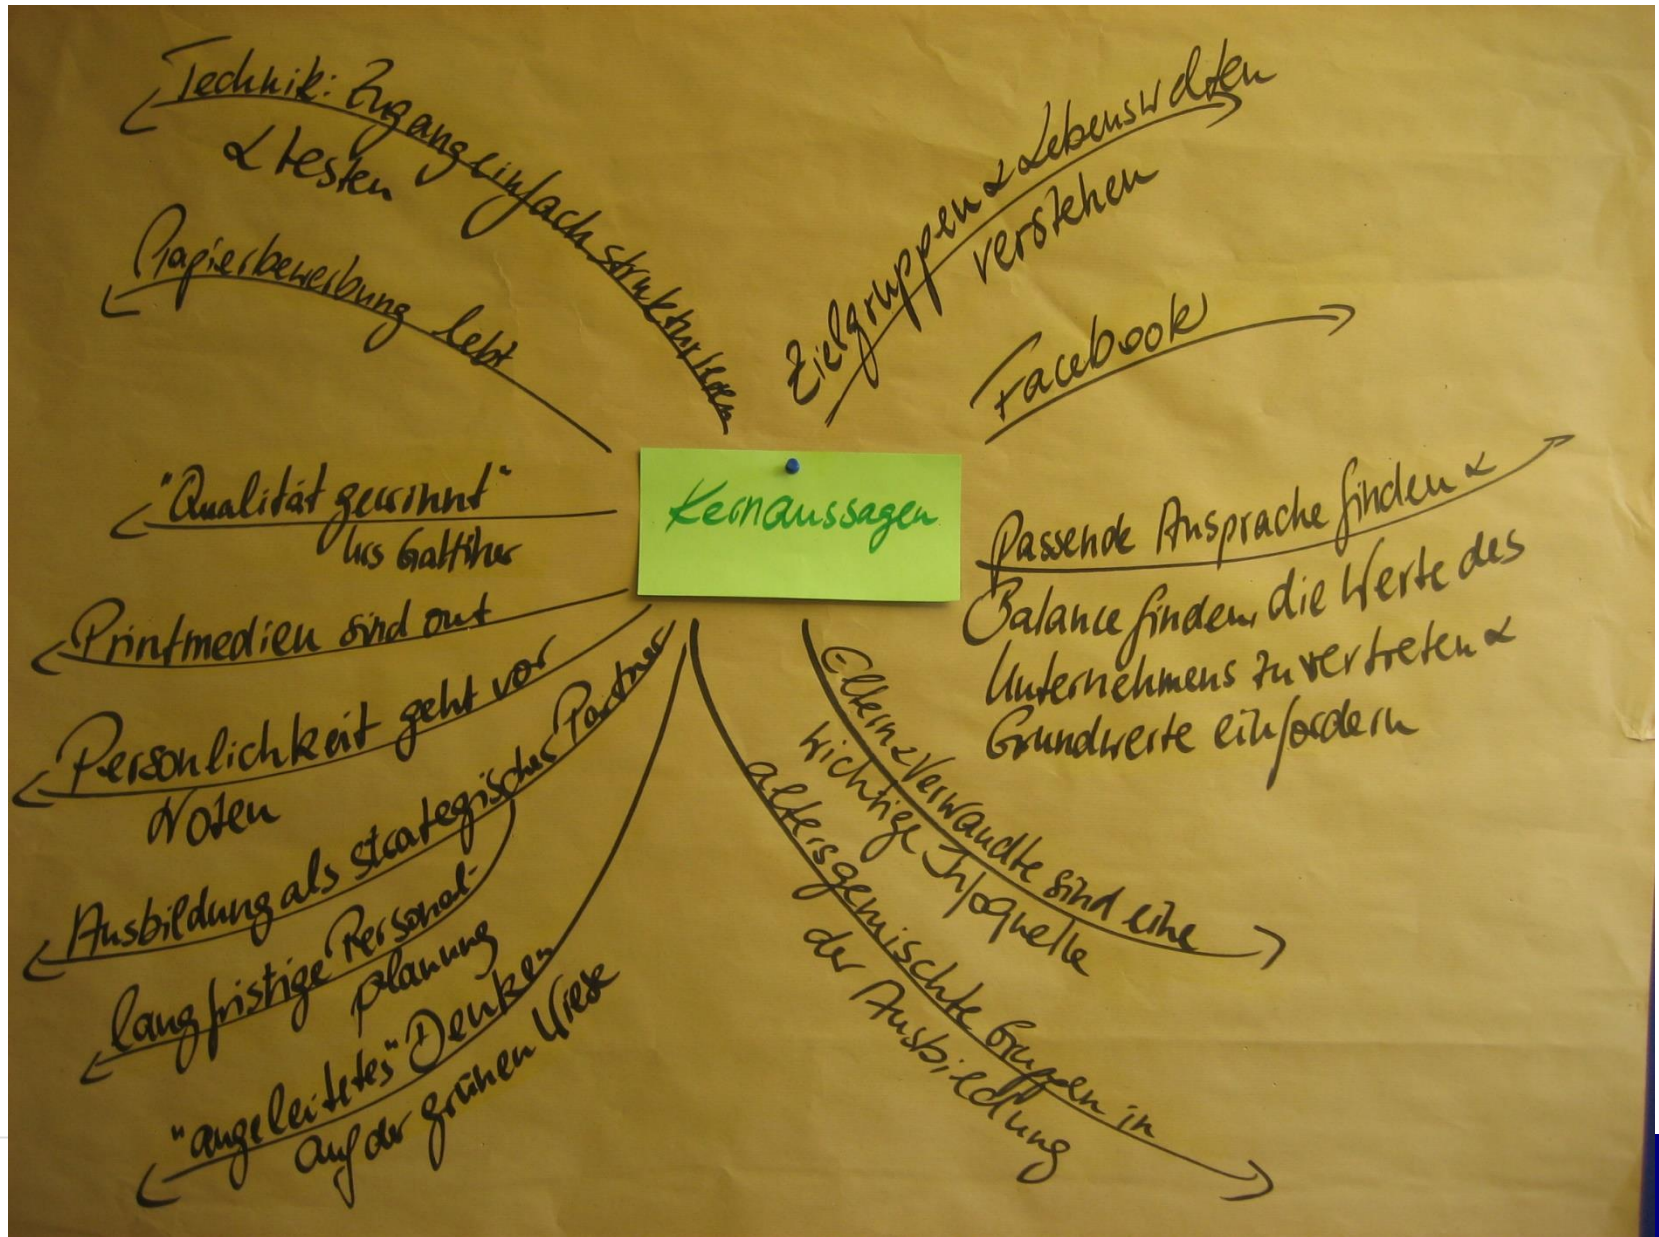 Kernaussagen
Technik: Zugang einfach strukturieren
& testen
Papierbewerbung lebt
"Qualität gewinnt"
Urs Gattiker
Printmedien sind out
Persönlichkeit geht vor
Noten
Ausbildung als strategischer Partner
langfristige Personal-
planung
"angeleitetes" Denken
auf der grünen Wiese
Zielgruppen & Lebenswelten
verstehen
Facebook
Passende Ansprache finden &
Balance finden, die Werte des
Unternehmens zu vertreten &
Grundwerte einfordern
Eltern & Verwandte sind eine
wichtige Infoquelle
altersgemischte Gruppen in
der Ausbildung